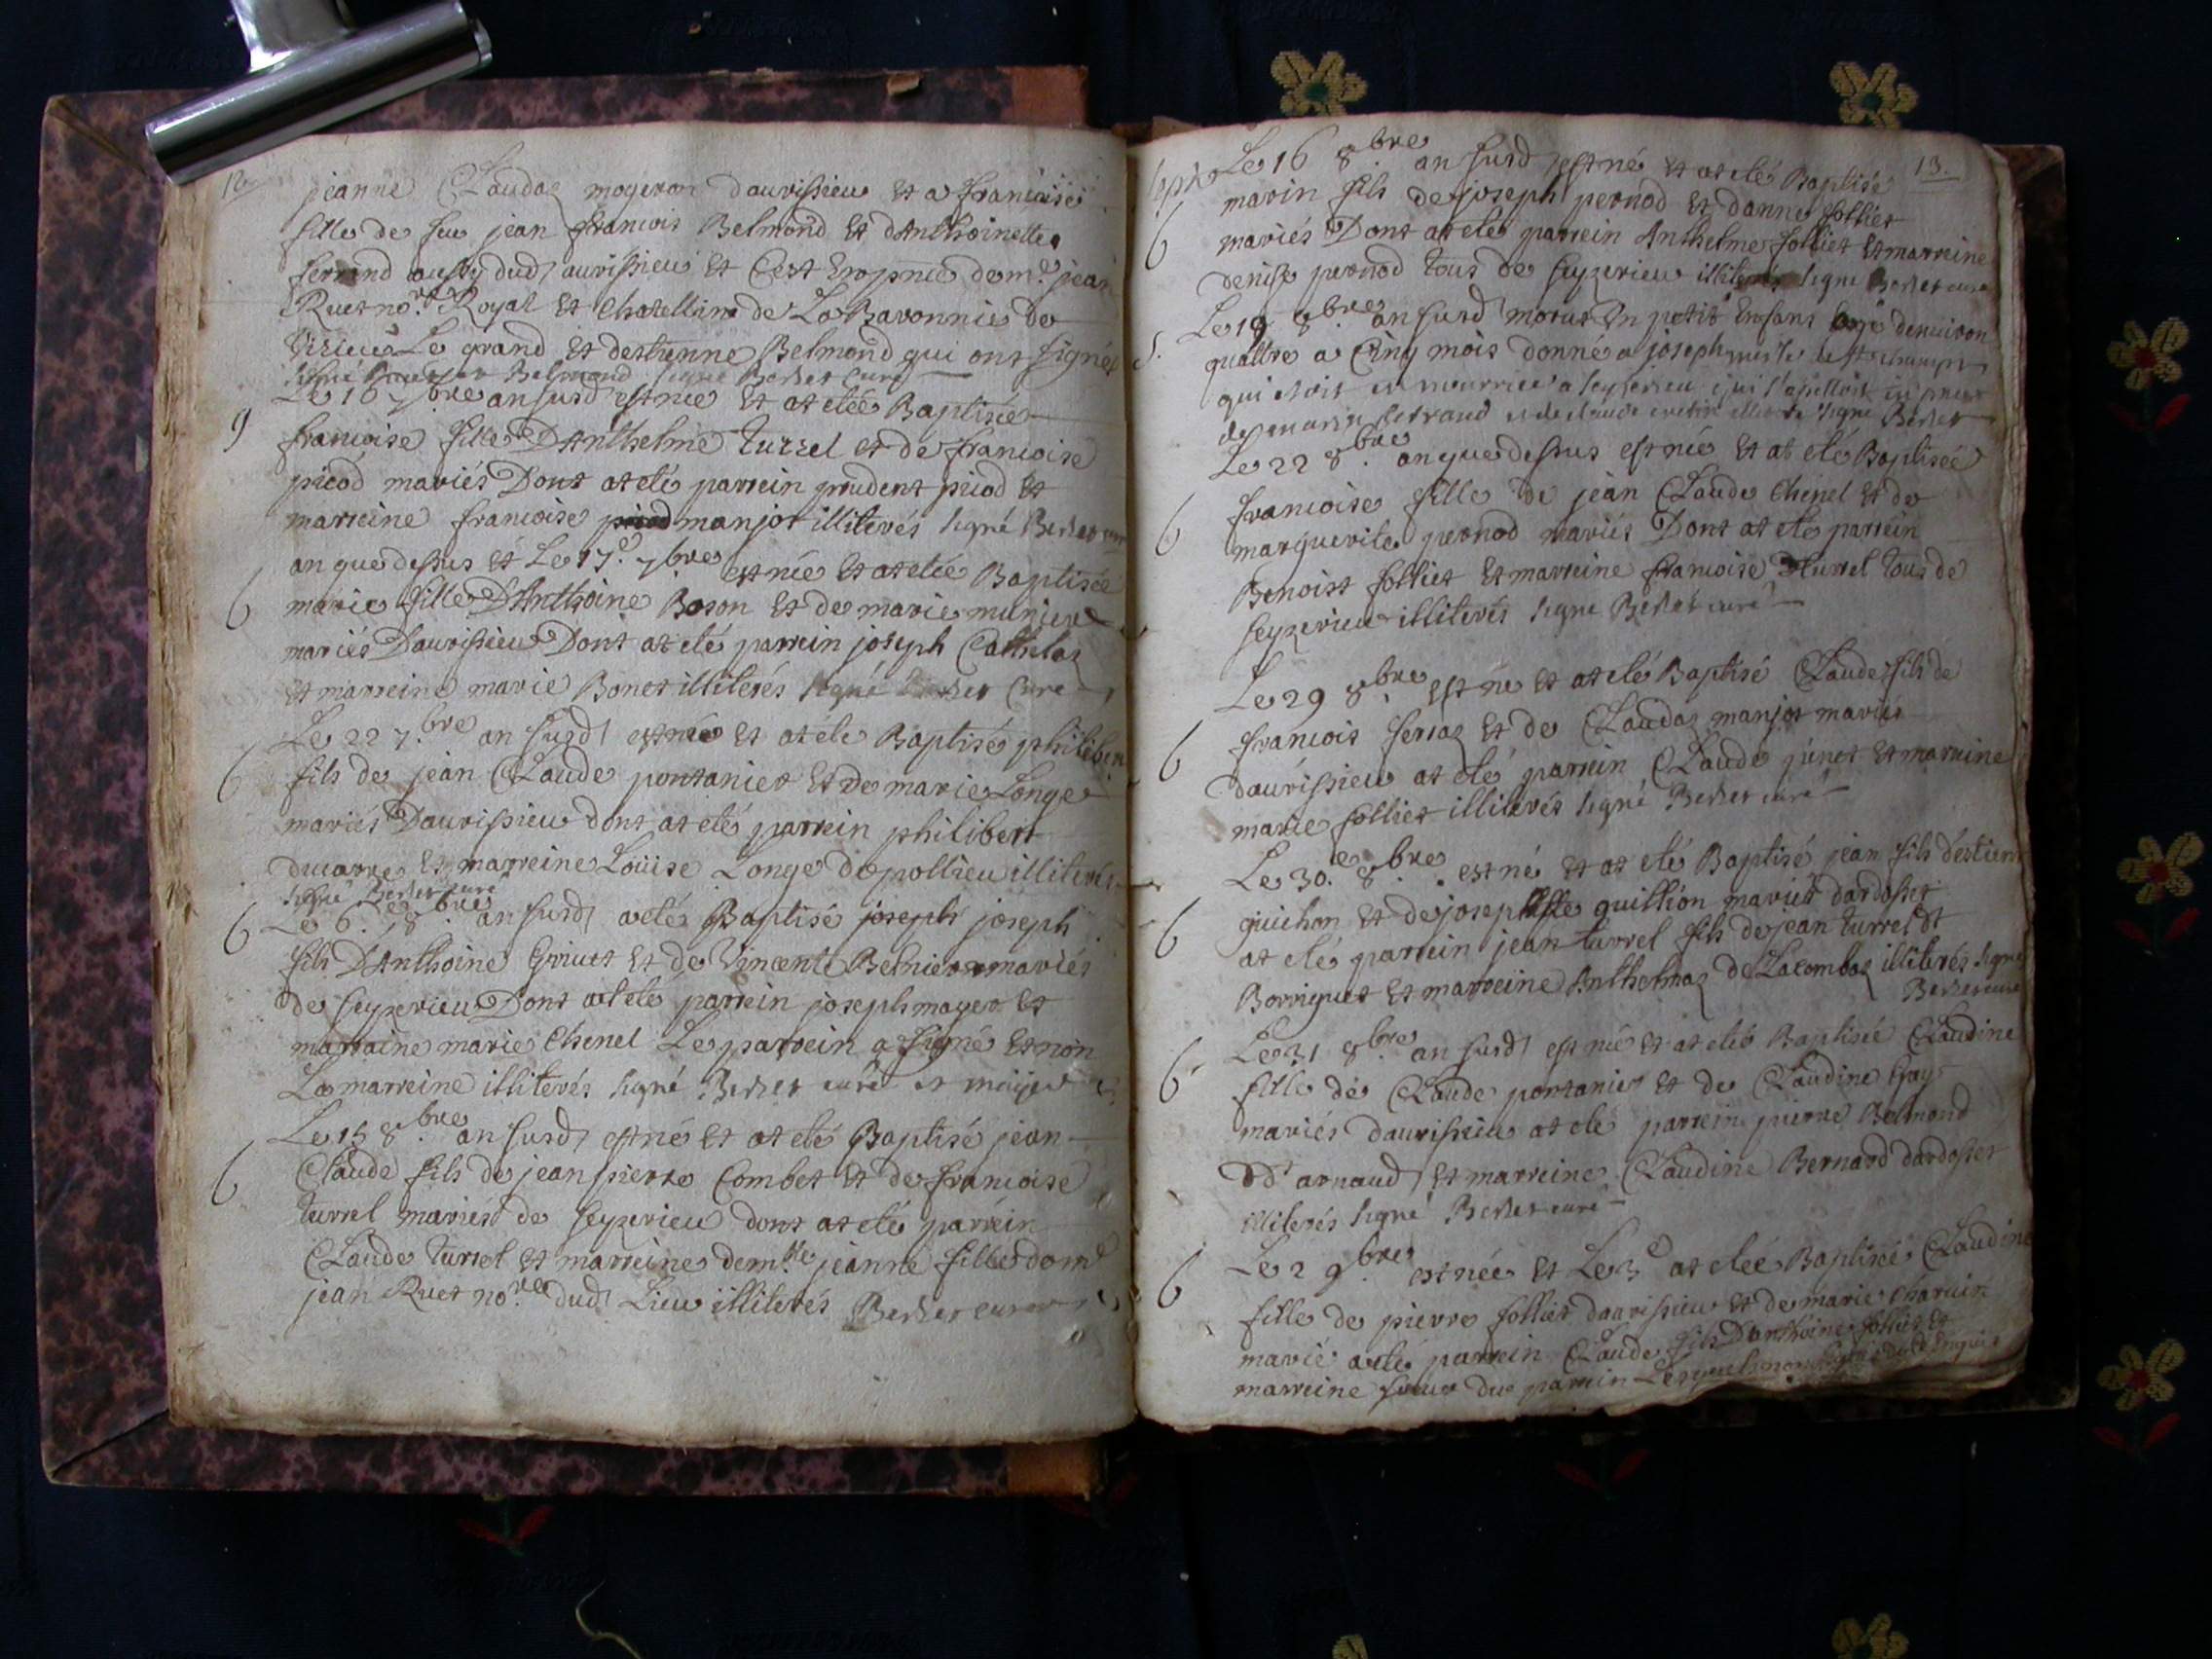 12
jeanne Claudaz mogeron daurissieu Et a francoise
fille de feu jean francois Belmond Et dAnthoinette
ferrand aussy dud aurissieu Et C'est En pnce de me. jean
Ruet nore. Royal Et Chatellain de La Baronnie de
Virieu Le grand Et destienne Belmond qui ont signés
signé Belmond signé Curé
Le 16 7bre an susd est née Et at etée Baptisée
9
francoise fille DAnthelme Turrel et de francoise
picod mariés Dont at eté parrein prudent picod Et
marreine francoise manjot illiterés signé
an que dessus et Le 17e. 7bre est née Et at etée Baptisée
6
marie fille DAnthoine Boson Et de marie munier
mariés Daurissieu Dont at eté parrein joseph Cathelaz
et marreine marie Bonet illiterés signé Curé
Le 22 7.bre an susd est né Et at eté Baptisé philibert
6
fils de jean Claude pontanier Et de marie Longe
mariés Daurissieu dont at eté parrein philibert
ducarre Et marreine Louise Longe de pollieu illiterés
signé curé
6
Le 6.e 8bre an susd a eté Baptisé joseph joseph
fils DAnthoine Grivet Et de Vincente Belnier mariés
de Seyzerieu Dont at eté parrein joseph mager Et
marraine marie Chenel Le parrein a signé Et non
La marreine illiterés signé curé et
Le 15 8.bre an susd est né Et at eté Baptisé jean
6
Claude fils de jean pierre Combet Et de francoise
turrel mariés de Seyzerieu dont at eté parrein
Claude turrel Et marreine demlle jeanne fille de me
jean Ruet nore. dud Lieu illiterés curé
13.
Le 16 8.bre an susd est né Et at eté Baptisé
6
marin fils de joseph pernod Et danne folliet
mariés Dont at eté parrein Anthelme folliet Et marreine
denise pernod tous de Seyzerieu illiterés signé curé
S.
Le 19 8bre an susd morut Un petit Enfant agé denviron
quattre a Cinq mois donné a joseph
qui etoit en nourrice a Seyzerieu
signé
Le 22 8.bre an que dessus est née Et at eté Baptisée
6
francoise fille de jean Claude Chenel Et de
marguerite pernod mariés Dont at eté parrein
Benoist folliet Et marreine francoise Turrel tous de
Seyzerieu illiterés signé curé
Le 29 8.bre est né Et at eté Baptisé Claude fils de
6
francois ferraz Et de Claudaz manjot mariés
daurissieu at eté parrein Claude Et marreine
marie folliet illiterés signé curé
Le 30.e 8.bre est né et at eté Baptisé jean fils destienne
6
guichon Et de josephte guillion mariés dardosset
at eté parrein jean turrel fils de jean turrel dt
Borniguet Et marreine Anthelmaz de Lacombaz illiterés signé
curé
Le 31 8bre an susd est née Et at etée Baptisée Claudine
6
fille de Claude pontanier Et de Claudine Gay
mariés daurissieu at eté parrein pierre Belmond
dt arnaud Et marreine Claudine Bernard dardosset
illiterés signé curé
Le 2 9.bre est née Et Le 3e at etée Baptisée Claudine
6
fille de pierre folliet daurissieu Et de marie Charuin
marié a eté parrein Claude fils Danthoine folliet Et
marreine soeur du parrein